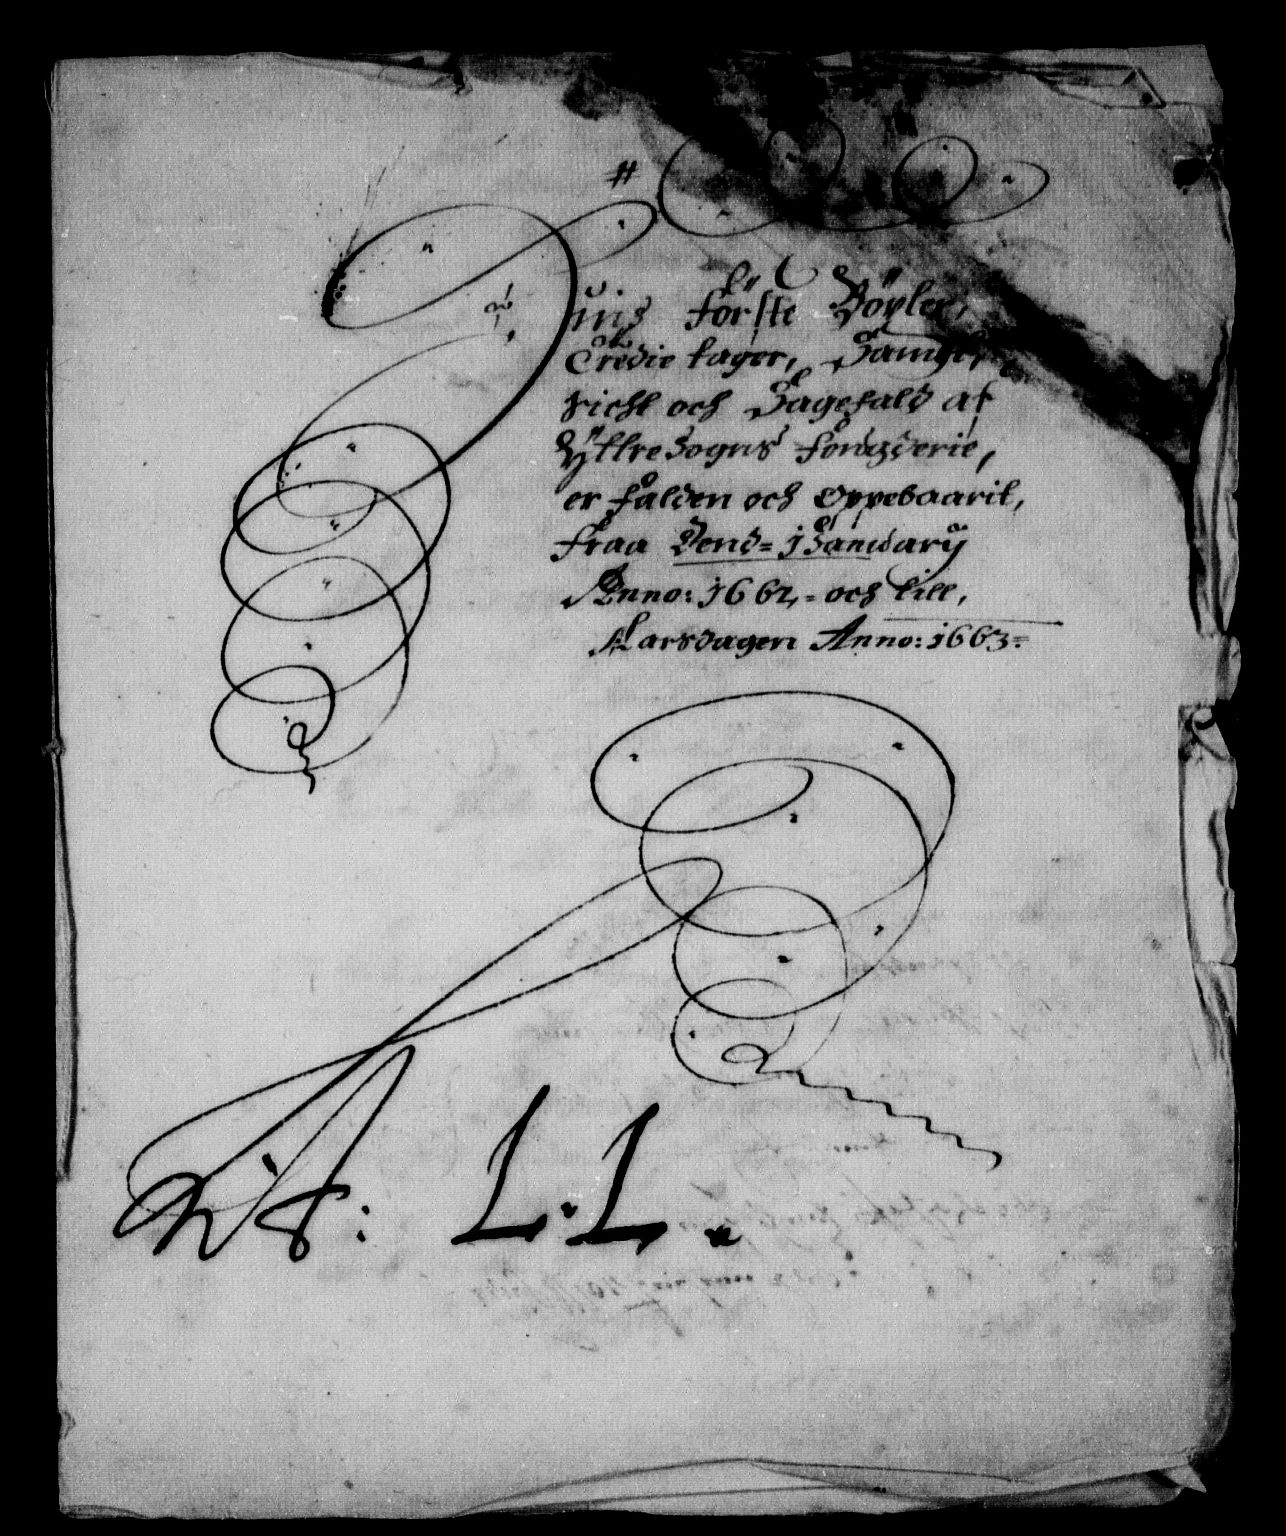 #
Juns förste Böxler,
Tredie tager,
Sicht och Sagefald af
Yttre Sogns fougderie,
er falden och Oppebaarit,
Fraa Dend= j Januäry
Anno: 1662,= och till,
Aarsdagen Anno: 1663=
No: L. L.